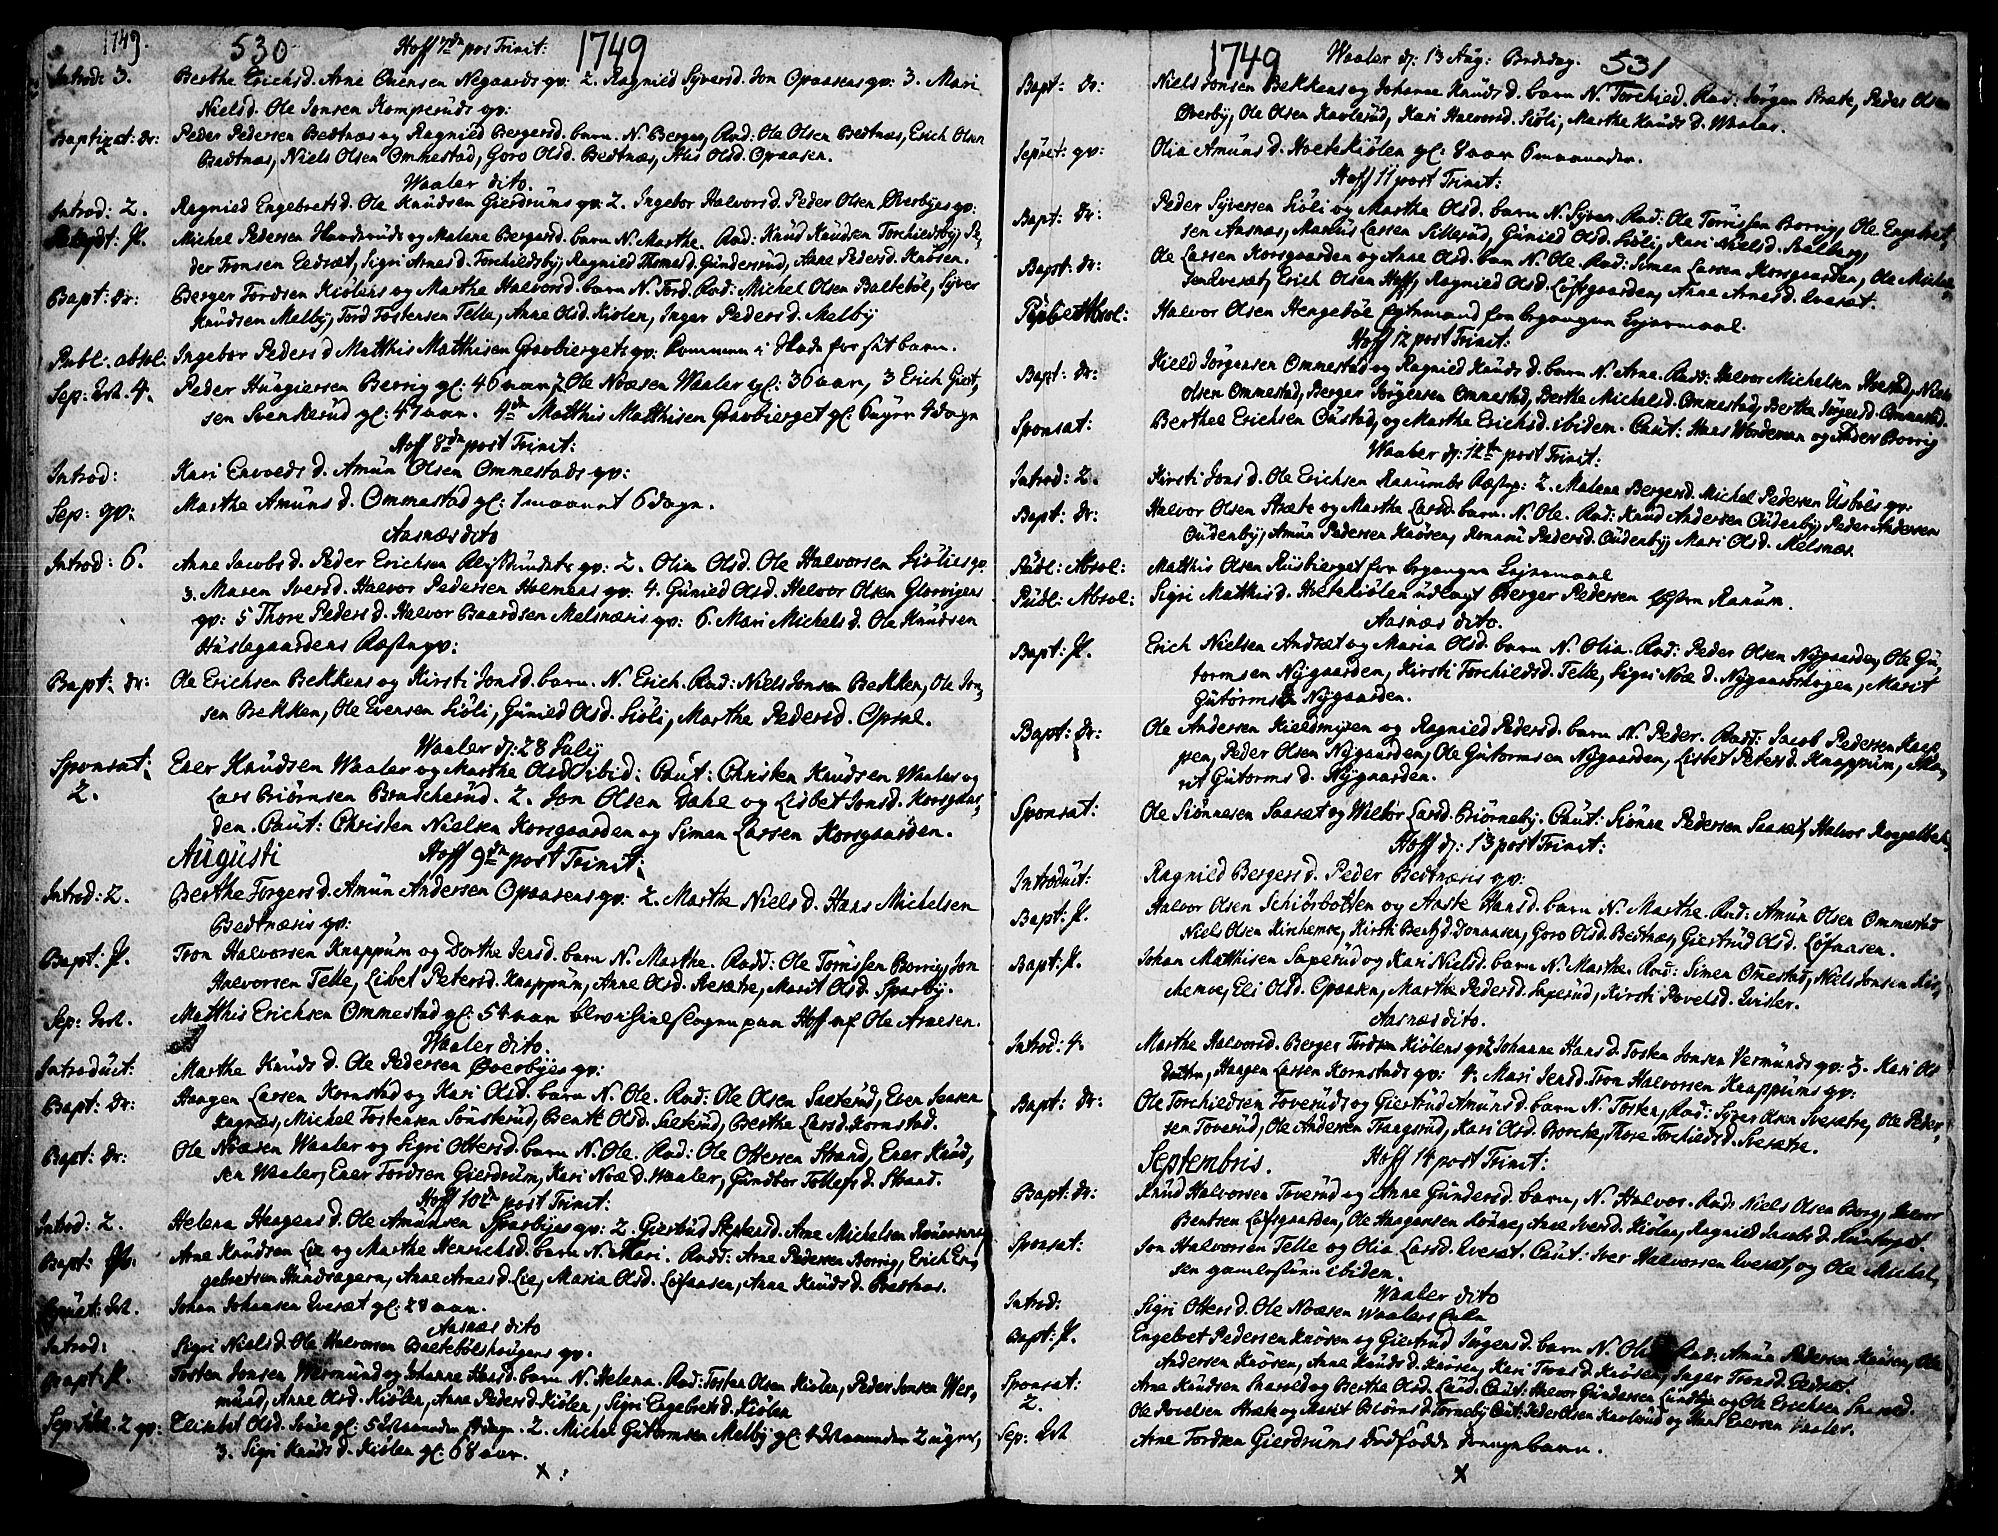 1749.
530 Hoff 7de pos Trinit: 1749
Introd: 3. Berthe Erichsd. Arne Nygaards qv: 2. Ragnied Syversd. Jon Opaasens qv: 3. Mari
Nielsd. Ole Jonsen Komperuds qv:
Baptizat: dr: Peder Pedersen Bedtnæs og Ragnied Bergersd. barn. N. Berger, Rad: Ole Olsen Bedtnæs, Erich Olsen
Bedtnæs, Niels Olsen Ommestad, Goro Olsd. Bedtnæs, Olsd. Opaasen.
Waaler dito.
Introd: 2. Ragnied Engebretsd. Ole Knudsen Gierdrums qv: 2. Ingebor Halvorsd. Peder Olsen Øverbyes qv:
P. Michel Pedersen og Malene Bergersd. barn N. Marthe. Rad: Knud Knudsen Torchildsby, Pe-
der Tronsen Eedsæt, Sigri Arnesd. Torchildsby, Ragnild Thomasd. Gundersrud, Anne Pedersd. Knøsen.
Bapt: dr: Berger Tordsen Kiølens og Marthe Halvorsd. barn N. Tord. Rad: Michel Olsen Baltebøl, Syver
Knudsen Melby, Tord Tostensen Telle, Anne Olsd. Kiølen, Inger Pedersd. Melby
Publ. absol: Ingebor Pedersd Matthis Matthisen Gravbiergets qv: kommen i skade for sit barn.
Sep: 4. Peder Berrig gl: 46 aar, 2 Ole Noæsen Waaler gl: 36 aar, 3 Erich
sen Svenskerud gl: 47 aar. 4de Matthis Matthisen Gravbierget gl 6 uger 4 dage
Hoff 8de post Trinit:
Introd: Kari Enevoldsd. Amun Olsen Ommestads qv:
Sep: qv: Marthe Amunsd. Ommestad gl: 1 maanet 6 dage.
Aasnæs dito
Introd: 6. Anne Jacobsd. Peder Erichsen qv: 2. Olia Olsd. Ole Halvorsen Siølies qv:
3. Maren Iversd. Halvor Pedersen Holmens qv: 4. Gunied Olsd. Halvor Olsen Glorvigens
qv: 5 Thore Pedersd. Halvor Baardsen Melsnæsis qv: 6. Mari Michelsd. Ole Knudsen
Huslegaardens qv:
Bapt: dr: Ole Erichsen Bekkens og Kirsti Jonsd. barn. N. Erich. Rad: Niels Jonsen Bekken, Ole Jon-
sen Bekken, Ole Evensen Siøli, Gunied Olsd. Siøli, Marthe Pedersd. Opsal.
Waaler d: 28 July
Sponsat: Ener Knudsen Waaler og Marthe Olsd ibid: Caut: Christen Knudsen Waaler og
2. Lars Biørnsen. 2. Jon Olsen Dahl og Lisbet Jonsd. Korsgaar-
den. Caut: Christen Nielsen Korsgaarden og Simen Larsen Korsgaarden.
Augusti Hoff 9de post Trinit:
Introd: 2. Berthe Torgersd. Amun Andersen Opaasens qv: 2. Marthe Nielsd. Hans Michelsen
Bedtnæsis qv:
Bapt: P. Tron Halvorsen Knappum og Dorthe Jensd. barn N. Marthe. Radd: Ole Tørrissen Borrig, Jon
Halvorsen Telle, Lisbet Petersd. Knappum, Anne Olsd., Marit Olsd. Sparby.
Sep: Matthis Erichsen Ommestad gl: 54 aar blev ihielslagen paa Hoff af Ole Arnesen.
Waaler dito.
Introduct: Marthe Knudsd. Ole Pedersen Øverbyes qv:
Bapt: dr: Haagen Larsen Kornstad og Kari Olsd. barn N. Ole. Rad: Ole Olsen Sæterud, Even
Michel Tostensen Sønsterud, Berte Olsd. Sæterud, Berthe Larsd. Kornstad.
Bapt: dr: Ole Noæsen Waaler og Sigri Ottersd. barn N. Ole. Rad: Ole Ottersen Strand, Ener Knud-
sen Waaler, Ener Tordsen Gierdrum, Kari Noæd. Waaler, Gundbor Tollefsd. Strand.
Hoff 10de post Trinit:
Introd: 2. Helena Haagensd. Ole Amunsen Sparbyes qv: 2. Giertrud. Arne Michelsen
Bapt: P. Arne Knudsen Lie og Marthe Henrichsd. barn N. Mari. Radd: Arne Pedersen Borrig, Erich En-
gebretsen Hundsageren, Anne Arnesd. Lie, Maria Olsd. Løfaasen, Anne Knudsd. Bredtnæs.
Johan Johansen Evesæt gl: 28 aar.
Aasnæs dito
Introd: Sigri Nielsd. Ole Halvorsen Baltebølshougens qv.
Bapt: P. Tosten Jonsen Wermund og Johanne Hansd. barn N. Helena. Rad: Tosten Olsen Kiølen, Peder Jonsen Wer-
mund, Anne Olsd. Kiølen, Anne Pedersd. Kiølen, Sigri Engebretsd. Kiølen
Sep: 2 qv: Elisabet Olsd. gl: 5 maaneder 14 dage. 2. Michel Gutormsen Melby gl: maaneder 2 uger,
3. Sigri Knudsd. Kiølen gl: 68 aar.
1749 Waaler d: 13 Aug: Bededag. 531
Bapt: dr: Niels Jonsen Bekkens og Johanne Knudsd. barn N. Torchied. Rad: Jørgen Stræte, Peder Olsen
Øverby, Ole Olsen Kavlerud, Kari Halvorsd. Siøli, Marthe Knudsd. Waaler.
Sepult: qv: Olia Amunsd. Hvetekiølen gl: 8 aar 6 maaneder.
Hoff 11 post Trinit:
Bapt: dr: Peder Syversen Siøli og Marthe Olsd. barn N. Syver. Rad: Ole Tørrissen Borrig, Ole Engebret-
sen Aasnæs, Mathis Larsen, Gunild Olsd. Siøli, Kari Nielsd.
Bapt: dr: Ole Larsen Korsgaarden og Anne Olsd. barn N. Ole. Rad: Simen Larsen Korsgaarden, Ole Michel-
sen Evesæt, Erich Olsen Hoff, Ragnied Olsd. Løfsgaarden, Anne Arnesd. Evesæt.
Publ: Absol: Halvor Olsen Hengebøl ægtemand for begangen Leyermaal.
Hoff 12 post Trinit:
Bapt: dr: Kield Jørgensen Ommestad og Ragnied Knudsd. barn N. Arne. Radd: Halvor Michelsen, Niels
Olsen Ommestad, Berger Jørgensen Ommestad, Berthe Michelsd. Ommestad, Berthe Jørgensd. Ommestad.
Sponsat: Berthel Erichsen Oustad, og Marthe Erichsd. ibidem. Caut: Hans Wordeman og Anders Borrig
Waaler d: 12te post Trinit:
Introd: 2. Kirsti Jonsd. Ole Erichsen Ranumbs: 2. Malene Bergersd. Michel Pedersen Usbøls qv:
Bapt: dr: Halvor Olsen Stræte og Marthe Larsd. barn. N. Ole. Rad: Knud Andersen Oudenby, Peder Andersen
Oudenby, Amun Pedersen Knøsen, Pedersd. Oudenby, Mari Olsd. Melsnæs.
Publ: Absol: Matthis Olsen Riisbierget for begangen Leyermaal
Publ: Absol: Sigri Mathisd. Hvetekiølen udlagt Berger Pedersen Østen Ranum.
Aasnæs dito.
Bapt: P. Erich Nielsen Andræt og Maria Olsd. barn N. Olia. Rad: Peder Olsen Nygaarden, Ole Gu-
tormsen Nygaarden, Kirsti Torchieldsd. Telle, Sigri Noæd. Nygaardshagen, Marit
Gutormsd. Nygaarden.
Bapt: dr: Ole Andersen Kieldmyren og Ragnied Pedersd. barn N. Peder. Radd: Jacob Pedersen Knap-
pen, Peder Olsen Nygaarden, Ole Gutormsen Nygaarden, Lisbet Petersd. Knappum, Ma-
rit Gutormsd. Nygaarden.
Sponsat: Ole Siønnesen Saaset og Walbor Larsd. Biørneby. Caut: Siønne Pedersen Saaset, Halvor
Hoff d: 13 post Trinit:
Introduct: Ragnied Bergersd. Peder Bedtnæsis qv:
Bapt: P. Halvor Olsen Schiørbotten og Aaste Hansd. barn N. Marthe. Rad: Amun Olsen Ommestad
Niels Olsen Kirchemoe, Kirsti, Goro Olsd. Bedtnæs, Giertrud Olsd. Løfaasen.
Bapt: P. Johan Matthisen Saxerud og Kari Nielsd. barn N. Marthe. Rad: Simen Ommestad, Niels Jonsen Kir-
chemoe, Eli Olsd. Opaasen, Marthe Pedersd. Saxerud, Kirsti Povelsd. Qvisler.
Aasnæs dito.
Introd: 4. Marthe Halvorsd. Berger Tordsen Kiølens qv: 2 Johanne Hansd. Tosten Jonsen Vermunds qv: 3. Kari Ols
datter, Haagen Larsen Kornstads qv: 4. Mari Jensd. Tron Halvorsen Knappums qv:
Bapt: dr: Ole Torchildsen Toveruds og Giertrud Amunsd. barn N. Tosten, Rad: Syver Olsen Svesætre, Ole Peder-
sen Toverud, Ole Andersen, Kari Olsd. Borche, Thore Torchieldsd. Svesætre.
Septembris. Hoff 14 post Trinit:
Bapt: dr: Knud Halvorsen Toverud og Anne Gundersd. barn, N. Halvor. Rad: Niels Olsen Berg, Halvor
Bentsen Løfsgaarden, Ole Haagensen Rønne, Anne Iversd. Kiølen, Ragnied Jacobsd.
Sponsat: Jon Halvorsen Telle og Olia Larsd. Evesæt. Caut: Iver Halvorsen Evesæt, og Ole Michel-
sen gamlestuen ibidem.
Waaler dito
Introd: Sigri Ottersd. Ole Noæsen Waalers Enke
Bapt: P. Engebret Pedersen Knøsen og Giertrud Jørgensd. barn N. Olia. Rad: Amun Pedersen Knøsen, Ole
Andersen Knøsen, Anne Knudsd. Knøsen, Kari Tronsd. Knøsen, Inger Tronsd. Eedsæt.
Sponsat: Arne Knudsen og Berthe Olsd. Lund. Caut: Halvor Gundersen Lundby og Ole Erichsen
2. Ole Povelsen Stræte og Marit Biørnsd. Torneby Caut: Peder Olsen Kavlerud og Hans Enersen Waaler.
Sep: Arne Tordsen Gierdrums dødfødde drenge barn.